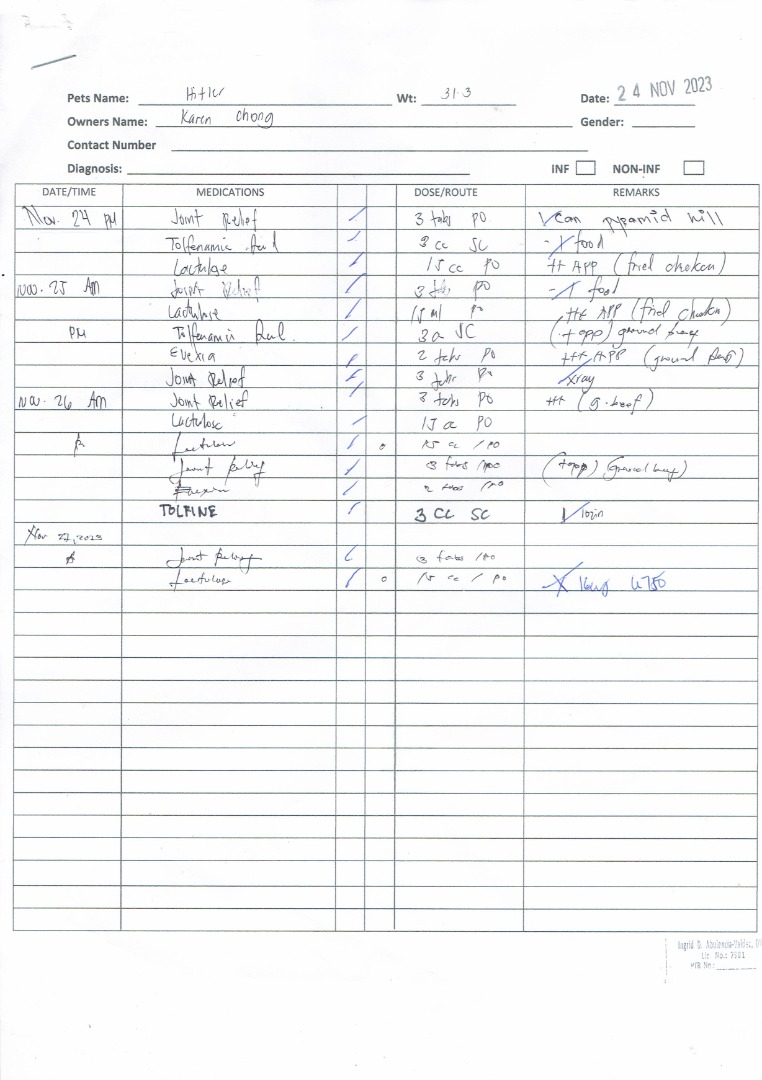 Pets Name: Hitler Wt: 31.3 Date: 24 NOV 2023
Owners Name: Karen Chong Gender:
Contact Number
Diagnosis: INF NON-INF
DATE/TIME MEDICATIONS DOSE/ROUTE REMARKS
Nov. 24 PM Joint Relief 3 tabs PO 1 Can pyramid hill
Tolfenamic Acid 3 cc SC - food
Lactulose 15 cc PO ++ APP (fried chicken)
Nov. 25 AM Joint Relief 3 tabs PO - food
Lactulose 15 ml PO ++ APP (fried chicken)
PM Tolfenamic SC (+app) ground beef
Evexia 2 tabs PO +++ APP (ground beef)
Joint Relief 3 tabs PO xray
Nov. 26 AM Joint Relief 3 tabs PO ++ (g. beef)
Lactulose 15 cc PO
Lactulose 15 cc / PO
Joint Relief 3 tabs / PO (+app) (ground beef)
Evexia 2 tabs / PO
TOLFINE 3 CC SC
Nov 27, 2023
Joint Relief 3 tabs / PO
Lactulose 15 cc / PO
Lic No.: 7901
PTR No.: